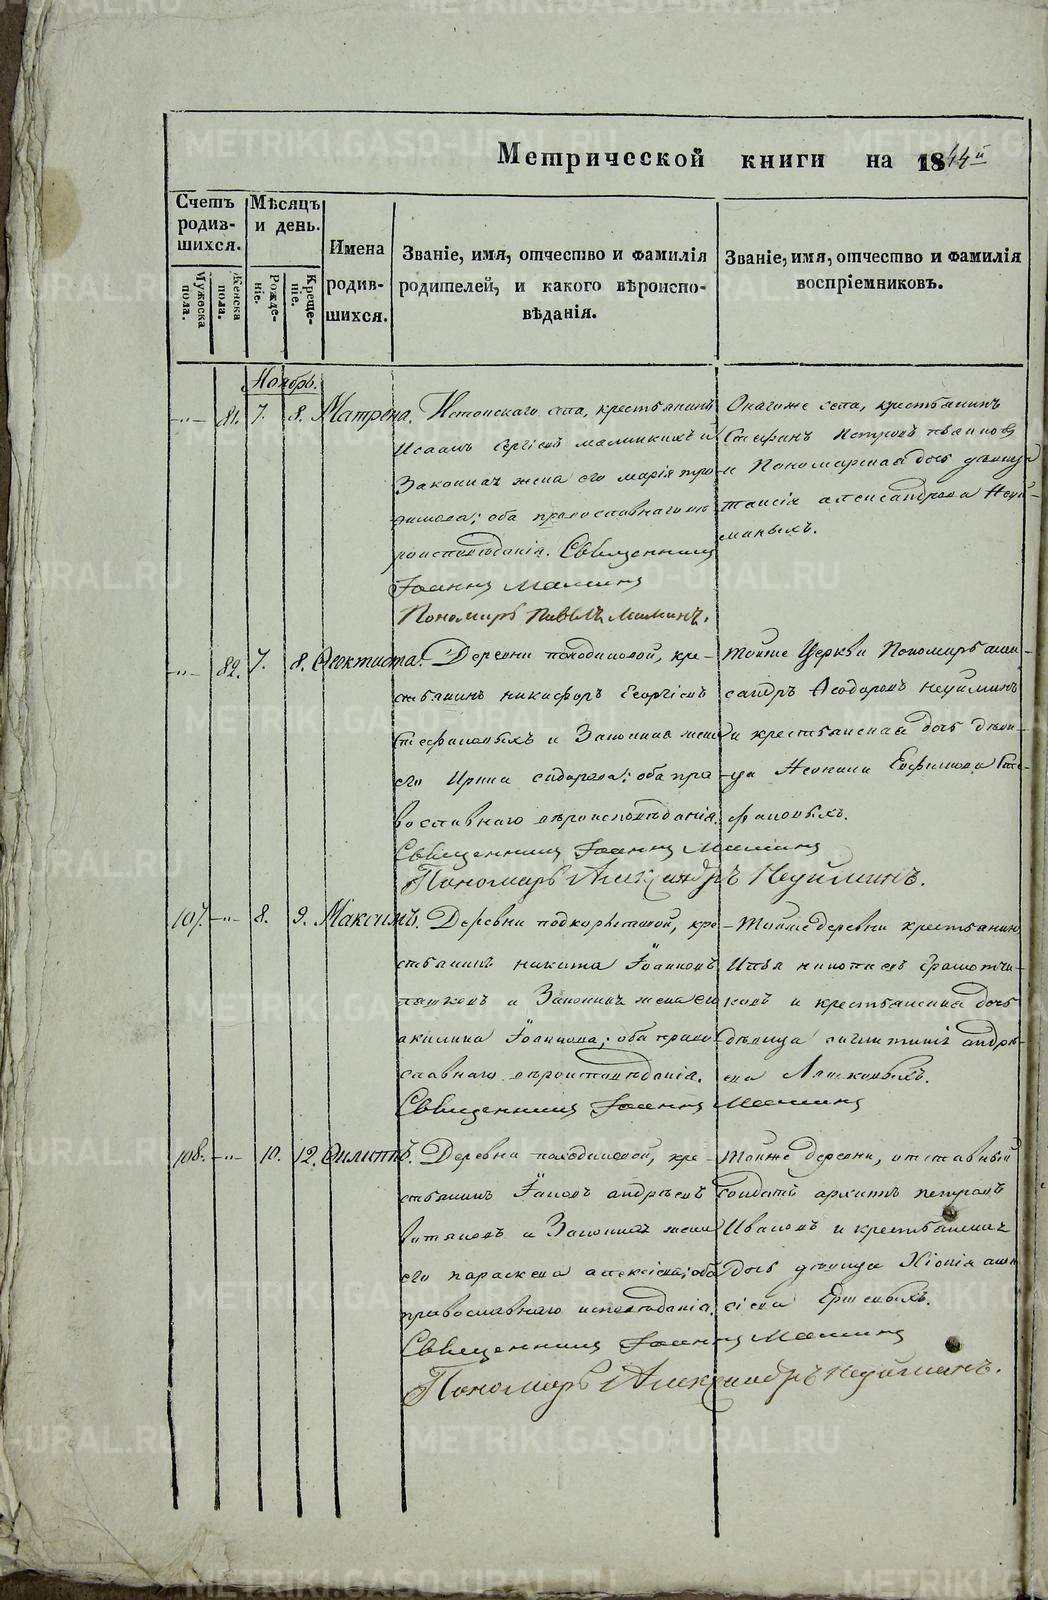 Метрической книги на 1844й
Счетъ родив-шихся.
Мѣсяцъ и день.
Имена родив-шихся.
Званіе, имя, отчество и фамилія родителей, и какого вѣроиспо-вѣданія.
Званіе, имя, отчество и фамилія воспріемниковъ.
Мужеска пола.
Женска пола.
Рожде-ніе.
Креще-ніе.
Ноябрь.
81. 7. 8. Матрена. села, крестьянинъ
Сергіевъ и
Законная жена его Марія Тро-
фимова; оба православнаго вѣ-
роисповѣданія. Священникъ
Іоаннъ Мамин
Пономарь Павелъ Маминъ.
Онагоже села, крестьянинъ
Стефанъ Петровъ
и Пономарская дочь дѣвица
Таисія Александрова Неуй-
миныхъ.
82. 7. 8. Феоктиста. Деревни Походиловой, кре-
стьянинъ Никифоръ Георгіевъ
Стефановыхъ и Законная жена
его Ирина Сидорова; оба пра-
вославнаго вѣроисповѣданія.
Священникъ Іоаннъ Мамин
Пономарь Александръ Неуйминъ.
Тойже Церкви Пономарь Алек-
сандръ Феодоровъ Неуйминъ
и крестьянская дочь дѣви-
ца Неонила Евфимова Сте-
фановыхъ.
107. 8. 9. Максимъ. Деревни Подкорытовой, кре-
стьянинъ Никита Іоанновъ
Пашковъ и Законная жена его
Акилина Іоаннова; оба право-
славнаго вѣроисповѣданія.
Священникъ Іоаннъ Мамин
Тойже деревни крестьянинъ
Илья
ковъ и крестьянская дочь
дѣвица Андре-
ева
108. 10. 12. Филиппъ. Деревни Походиловой, кре-
стьянинъ Андреевъ
и Законная жена
его Параскева Алексіева; оба
православнаго исповѣданія.
Священникъ Іоаннъ Мамин
Пономарь Александръ Неуйминъ.
Тойже деревни, отставный
солдатъ Архипъ Петровъ
Ивановъ и крестьянская
дочь дѣвица Хіонія Алек-
сіева Ершевыхъ.
METRIKI.GASO-URAL.RU